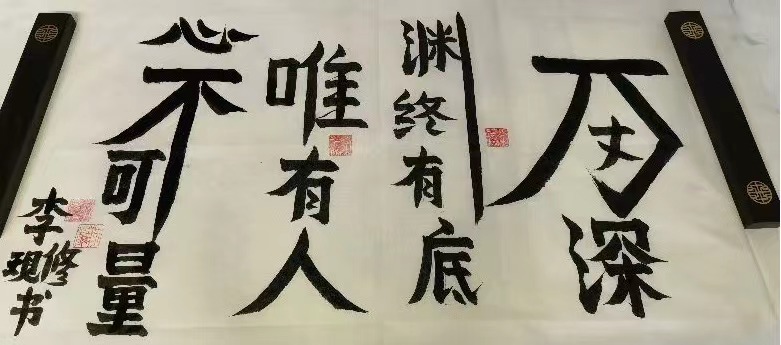 万丈深
渊终有底
唯有人
心不可量
李修现书